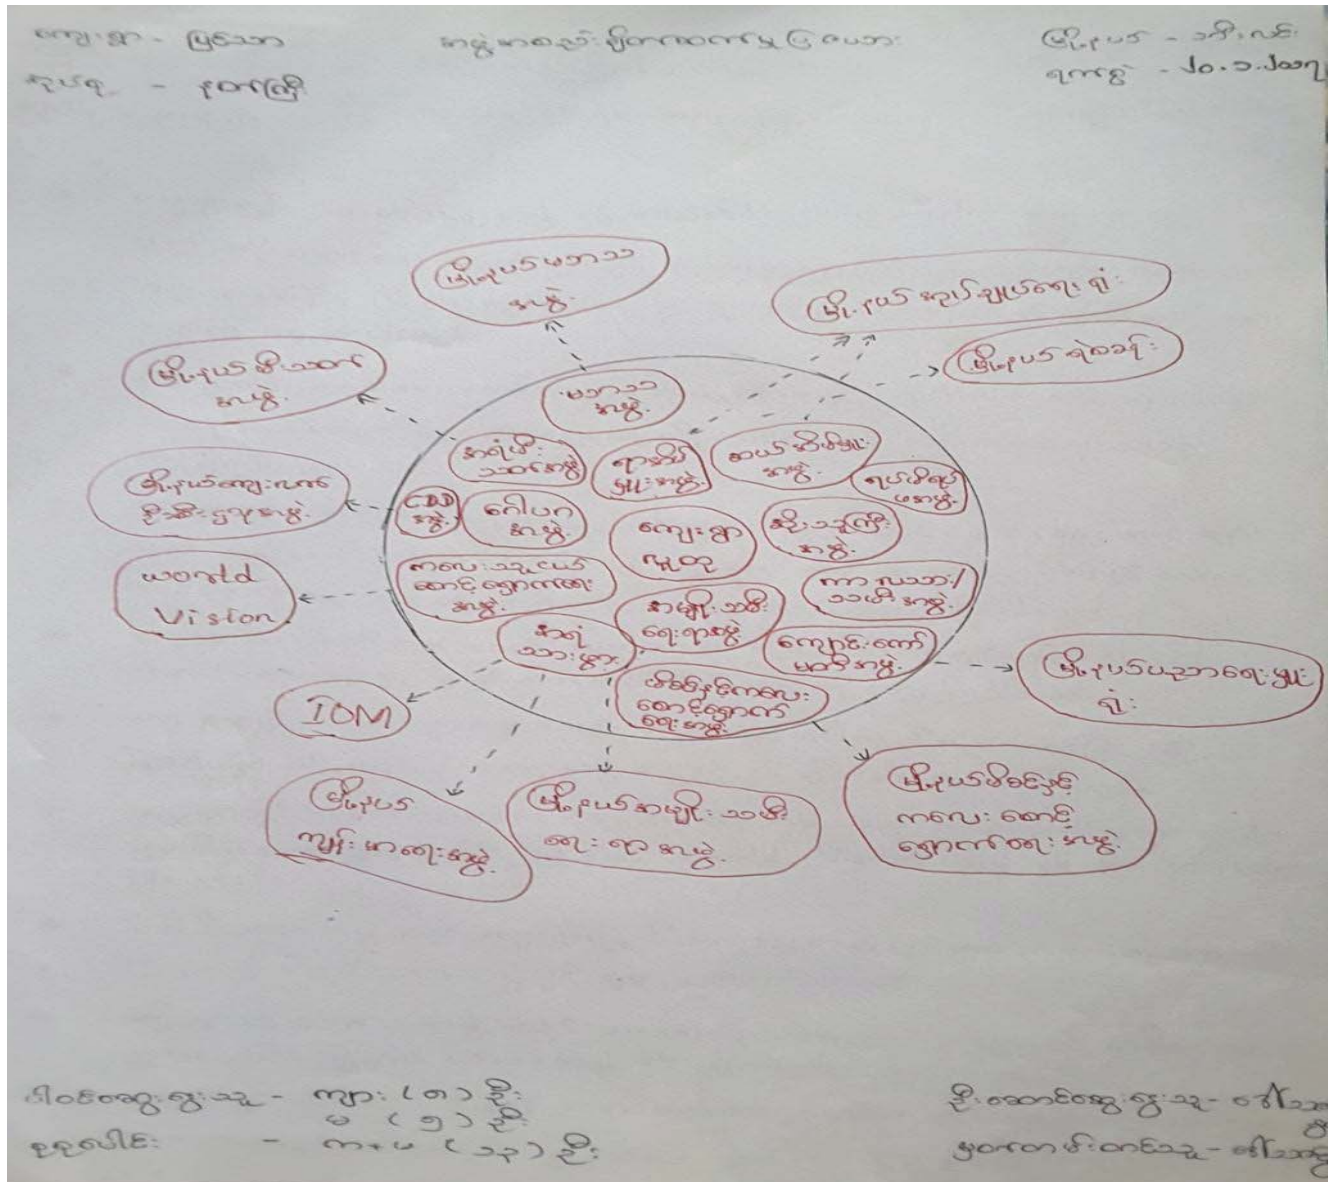 ကျေးရွာ - မြင်သာ
အုပ်စု - နတ်ကြီး
အဖွဲ့အစည်းချိတ်ဆက်မှုပြဇယား
မြို့နယ် - သစ်လင်း
ရက်စွဲ - ၂၀.၁.၂၀၁၇
မြို့နယ်မဘသ
အဖွဲ့
မြို့နယ်အုပ်ချုပ်ရေးရုံး
မြို့နယ်ရဲစခန်း
မြို့နယ်မီးသတ်
အဖွဲ့
မြို့နယ်ကျေးလက်
ဦးစီးဌာနအဖွဲ့
World
Vision
IOM
မြို့နယ်
ကျန်းမာရေးအဖွဲ့
မြို့နယ်အမျိုးသမီး
ရေးရာအဖွဲ့
မြို့နယ်မိခင်နှင့်
ကလေးစောင့်
ရှောက်ရေးအဖွဲ့
မြို့နယ်ပညာရေးမှူး
ရုံး
မဘသ
အဖွဲ့
အရံမီး
သတ်အဖွဲ့
ရာအိမ်
မှူးအဖွဲ့
ဆယ်အိမ်မှူး
အဖွဲ့
ရပ်မိရပ်
ဖအဖွဲ့
CDD
အဖွဲ့
ဂေါပက
အဖွဲ့
ကျေးရွာ
လူထု
အဖွဲ့
ကလေးသူငယ်
စောင့်ရှောက်ရေး
အဖွဲ့
ကာလသား/
သမီးအဖွဲ့
အမျိုးသမီး
ရေးရာအဖွဲ့
အရံ
သားဖွား
ကျောင်းကော်
မတီအဖွဲ့
မိခင်နှင့်ကလေး
စောင့်ရှောက်
ရေးအဖွဲ့
ပါဝင်ဆွေးနွေးသူ - ကျား (၈) ဦး
မ (၅) ဦး
စုစုပေါင်း - က+မ (၁၃) ဦး
ဦးဆောင်ဆွေးနွေးသူ -
မှတ်တမ်းတင်သူ -